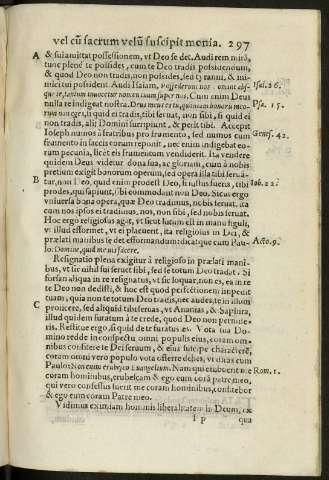 vel cũ sacrum velũ suscipit monia. 297
A & sui amittat possessionem, vt Deo se det. Audi rem mirã,
tunc plenè te possides, cum te Deo tradis possidendum,
& quod Deo non tradis, non possides, sed tyranni, & ini-
mici tui possident. Audi Isaiam, Isai. 26.
Cum enim Deus
nulla re indigeat nostra. Psa. 15.
non eges, li quid ei tradis, tibi seruat, non sibi, si quid ei
non tradis, alij Domini surripiunt, & petit tibi. Accepit
Ioseph numos à fratribus pro frumento, sed numos cum Genes. 42.
frumento in saccis eorum reponit, nec enim indigebat eo-
rum pecunia, licèt eis frumentum vendiderit. Ita vendere
quidem Deus videtur dona sua, ac gloriam, cum à nobis
pretium exigit bonorum operum, sed opera illa tibi serua-
B tur, non Deo, quid enim prodest Deo, si iustus fueris, tibi Iob. 22.
prodes, qui sapiunt, ibi commodant non Deo. Sicut ergo
vniuersa bona opera, quæ Deo tradimus, nobis seruat, ita
cum nos ipsos ei tradimus, nos, non sibi, sed nobis seruat.
Hoc ergo religiosus agat, vt sicut lutum est in manu figuli,
vt illud efformet, vt ei placuerit, ita religiosus in Dei, &
prælati manibus se det efformandum: dicatque cum Pau- Acto. 9.
lo: Domine, quid me vis facere.
Resignatio plena exigitur à religioso in prælati mani-
bus, vt sic nihil sui seruet sibi, sed se totum Deo tradat. Si
forsan aliqua in re resignatus, vt sic loquar, non es, ea in re
te Deo non dedisti, & hoc est quod perfectionem impedit
tuam, quia non te totum Deo tradis, nec audes, te in illum
C proijcere, sed aliquid tibi seruas, vt Ananias, & Saphira,
illud quidem furatum à te crede, quod Deo non permise-
ris. Restitue ergo, si quid de te furatus es. Vota tua Do-
mino redde in conspectu omni populi eius, coram om-
nibus confitere te Dei seruum, & eius suscipe characterẽ,
coram omni vero populo vota offerre debes, vt dicas cum
Paulo: Non enim erubesco Euangelium. Nam qui erubuerit me Rom. 1.
coram hominibus, erubescam & ego eum corã patre meo,
qui vero confessus fuerit me coram hominibus, confitebor
& ego eum coram Patre meo.
Vidimus eximiam hominis liberalitatem in Deum, ex
P qua